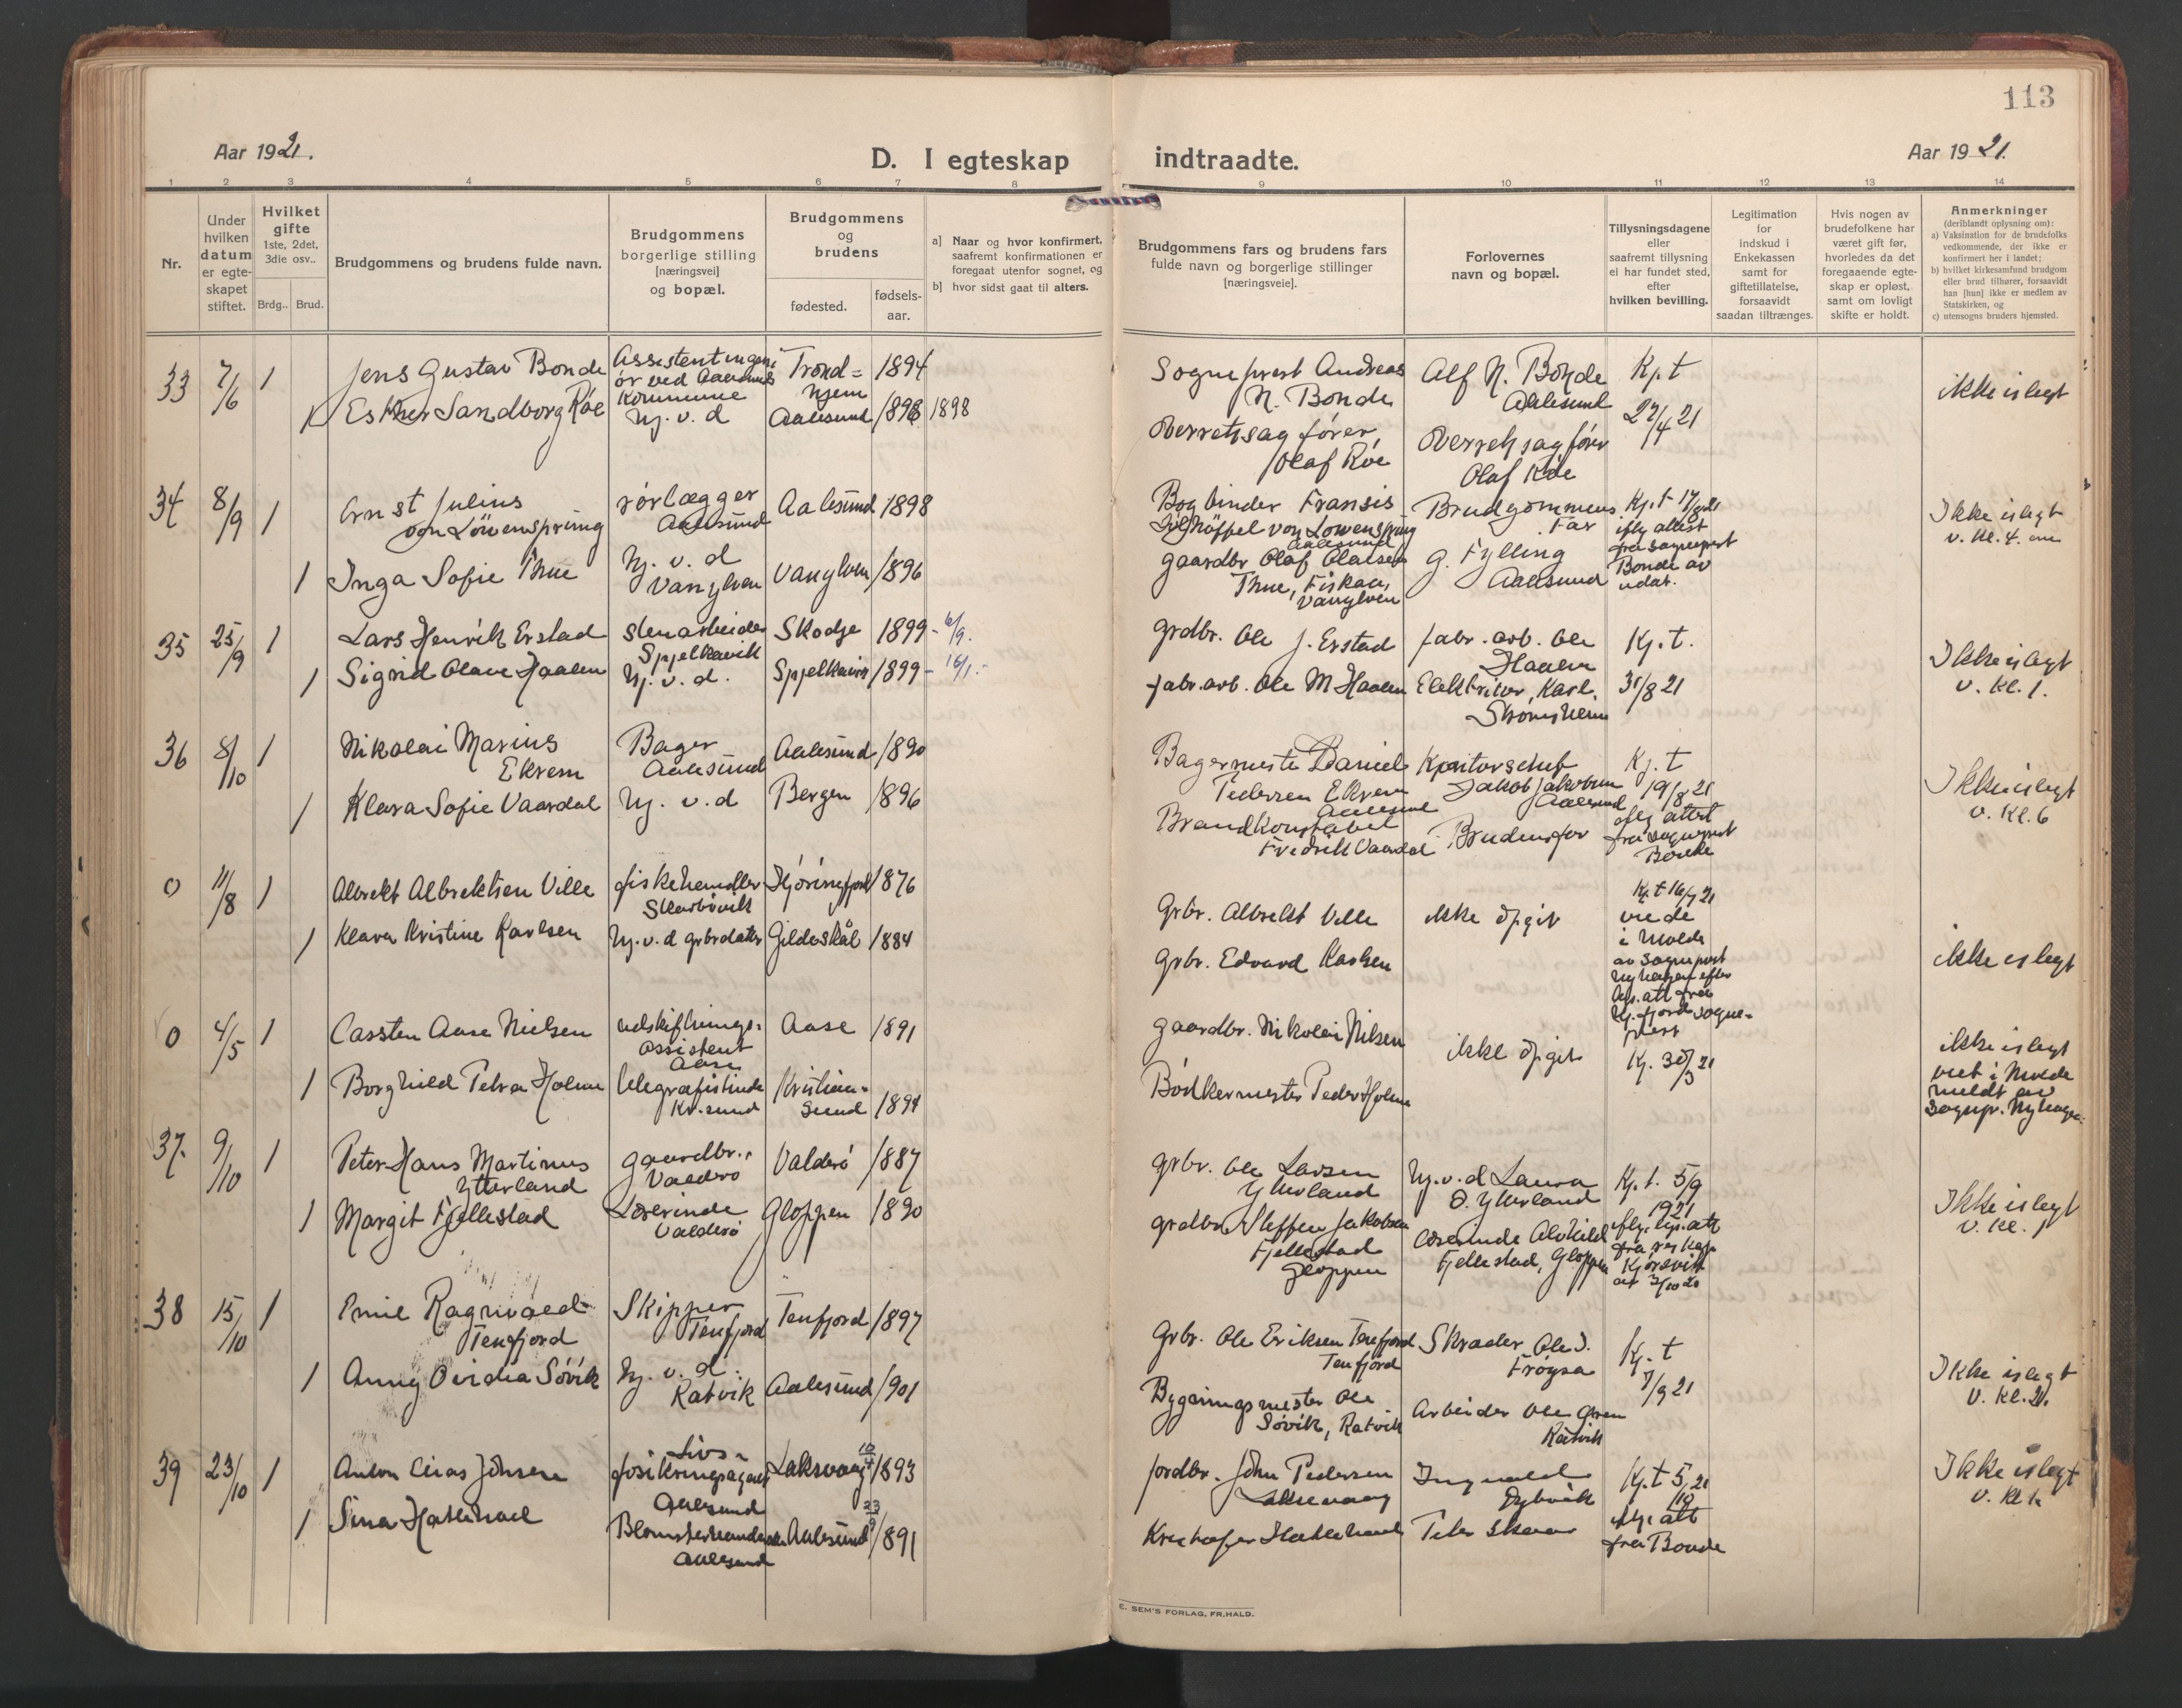 113
Aar 1921.
D. I egteskap indtraadte.
Aar 1921.
1 2 3 4 5 6 7 8 9 10 11 12 13 14
Nr.
Under hvilken datum er egte-skapet stiftet.
Hvilket gifte
1ste, 2det, 3die osv..
Brdg.. Brud.
Brudgommens og brudens fulde navn.
Brudgommens borgerlige stilling [næringsvei] og bopæl.
Brudgommens og brudens
fødested.
fødsels-aar.
a] Naar og hvor konfirmert, saafremt konfirmationen er foregaat utenfor sognet, og
b] hvor sidst gaat til alters.
Brudgommens fars og brudens fars fulde navn og borgerlige stillinger [næringsveie].
Forlovernes navn og bopæl.
Tillysningsdagene eller saafremt tillysning ei har fundet sted, efter hvilken bevilling.
Legitimation for indskud i Enkekassen samt for giftetillatelse, forsaavidt saadan tiltrænges.
Hvis nogen av brudefolkene har været gift før, hvorledes da det foregaaende egte-skap er opløst, samt om lovligt skifte er holdt.
Anmerkninger
(deriblandt oplysning om):
a) Vaksination for de brudefolks vedkommende, der ikke er konfirmert her i landet;
b) hvilket kirkesamfund brudgom eller brud tilhører, forsaavidt han [hun] ikke er medlem av Statskirken, og
c) utensogns bruders hjemsted.
33 7/6 1 Jens Gustav Bonde Assistentingeniør ved Aalesunds Kommune Trondhjem 1894 Sogneprest Andreas N. Bonde Alf N. Bonde Aalesund Kj. t ikke islegt
1 Esther Sandborg Róe Hj. v. d Aalesund 1898 1898 Overretssagfører Olaf Róe Overretssagfører Olaf Róe 27/4 21
34 8/9 1 Ernst Julius von Löwensprung rørlægger Aalesund Aalesund 1898 Bogbinder Fransis von Löwensprung Aalesund Brudgommens Far Kj. t 17/8 21 iflg attest fra sogneprest Bonde av udat. Ikke islegt v. Kl. 4.
1 Inga Sofie Thue Hj. v. d Vanylven Vanylven 1896 gaardbr Olaf Olalsen Thue, Fiskaa, Vanylven G. Fylling Aalesund
35 25/9 1 Lars Henrik Erstad Stenarbeider Spjelkavik Skodje 1899 - 6/9. grdbr. Ole J. Erstad fabr. arb. Ole Haalen Kj. t. Ikke islegt v. Kl. 1.
1 Sigrid Olave Haalen Hj. v. d. Spjelkavik 1899 - 16/1. fabr. arb. Ole M Haalen Elektriker, Karl. Strømsheim 31/8 21
36 8/10 1 Nikolai Marius Ekrem Bager Aalesund Aalesund 1890 Bagermester Daniel Pedersen Ekrem Aalesund Kontorschef Jakob Jakobsen Aalesund Kj. t 19/8 21 iflg attest fra sogneprest Bonde Ikke islegt v. Kl. 6
1 Klara Sofie Vaardal Hj. v. d Bergen 1896 Brandkonstabel Fredrik Vaardal Brudens far
0 11/8 1 Albrekt Albrektsen Ville fiskehandler Skarbøvik Hjørinfjord 1876 Grbr. Albrekt Ville ikke opgit Kj. t 16/7 21 viede i Molde av sogneprest Nyhagen efter lys. att fra Hj. fjord sogne-prest ikke islegt
1 Klara Kristine Karlsen Hj. v. d grbrdatter Gildeskål 1884 Grbr. Edvard Karlsen
0 4/5 1 Carsten Aase Nielsen udskiftnings-assistent Aase Aase 1891 gaardbr. Nikolai Nilsen ikke opgit Kj. 30/3 21 ikke islegt viet i Molde meldt av sognepr. Nyhagen.
1 Borghild Petra Holm telegrafistinde Kr.sund Kristian-sund 1894 Bødkermester Peder Holm
37. 9/10 1 Peter Hans Martinus Ytterland gaardbr., Valderø Valderø 1887 grbr. Ole Larsen Ytterland Hj. v. d Laura O. Ytterland Kj. t. 5/9 1921 iflg. lys. att fra res kap Kjørsvik Ikke islegt v. Kl. 1
1 Margit Fjellestad Lærerinde Valderø Gloppen 1890 grdbr Steffen Jakobsen Fjellestad Gloppen lærerinde Alvhild Fjellestad, Gloppen
38 15/10 1 Emil Ragnvald Tenfjord Skipper Tenfjord Tenfjord 1897 Grbr. Ole Eriksen Tenfjord Tenfjord Skræder Ole J. Frøysa Kj. t 7/9 21 Ikke islegt v. Kl. 2.
1 Anny Ovidia Søvik Hj. v. d. Ratvik Aalesund 1901 Bygningsmester Ole Søvik, Ratvik Arbeider Ole Ratvik
39 23/10 1 Anton Johnsen Livs-forsikringsagent Aalesund Laksevaag 10/4 1893 Jordbr. John Pedersen Laksevaag Ingvald Dybvik Kj. t 5/10 21 lys att fra Bonde Ikke islegt v. Kl 1.
1 Sina Hatlehoel Blomsterhandler Aalesund Aalesund 23/9 1891 Kristofer Hatlehoel Peter Skaar
E. SEM'S FORLAG, FR.HALD.